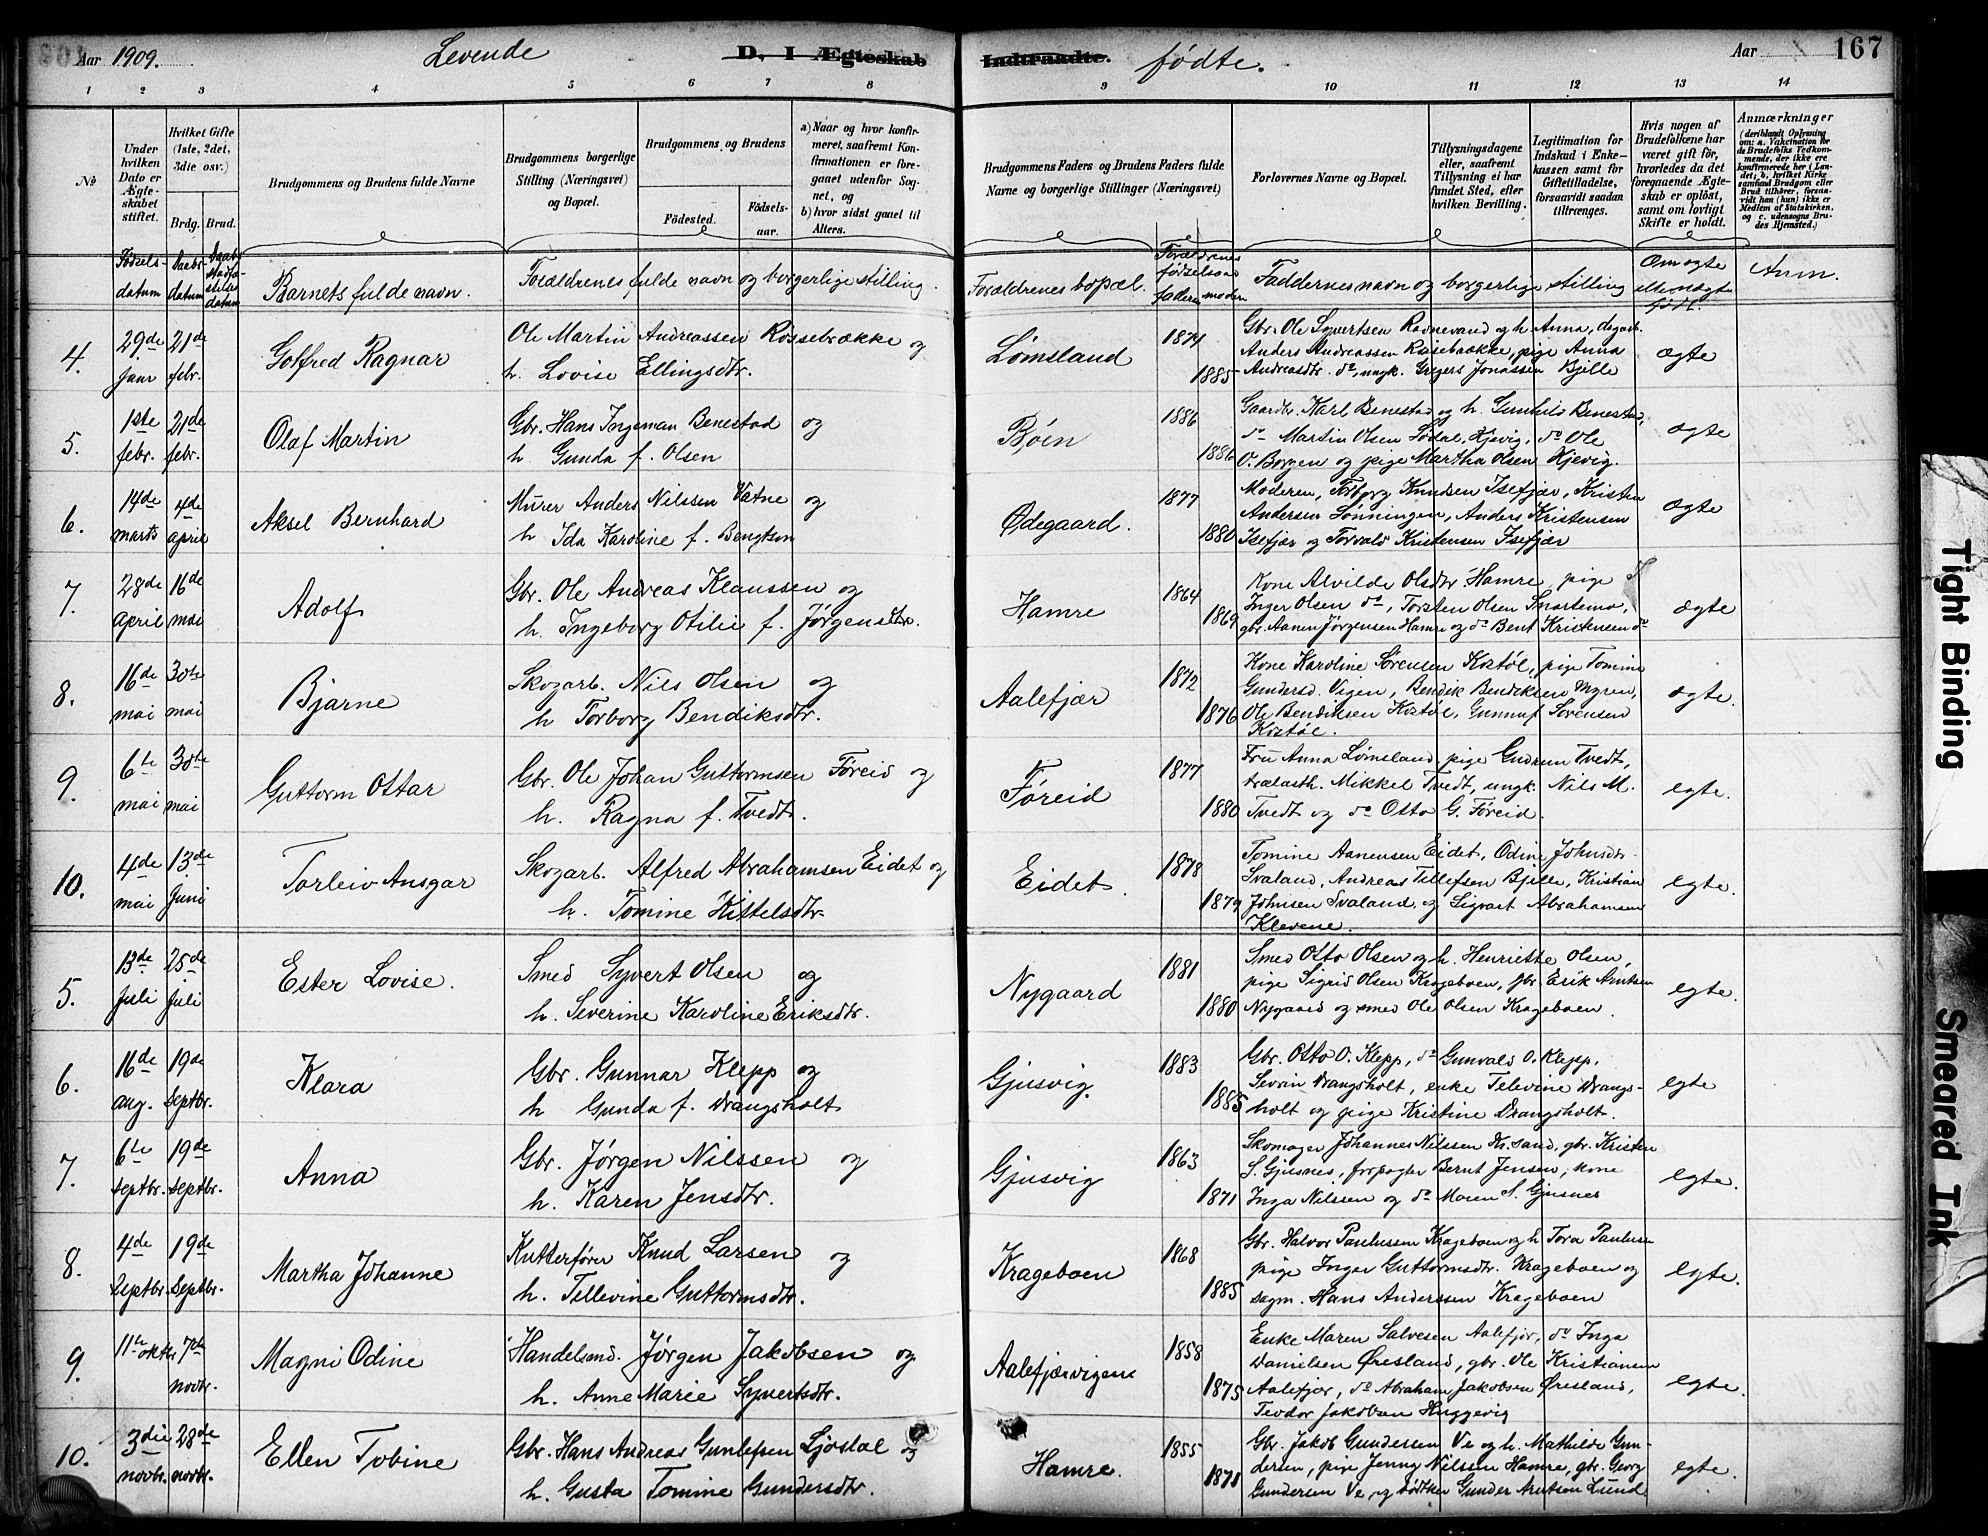 Aar 1909. Levende D. I Ægteskab Indtraadte. fødte. Aar 167
1 2 3 4 5 6 7 8 9 10 11 12 13 14
№
Under hvilken Dato er Ægteskabet stiftet.
Hvilket Gifte (1ste, 2det, 3die osv.)
Brdg. Brud.
Brudgommens og Brudens fulde Navne
Brudgommens borgerlige Stilling (Næringsvei) og Bopæl.
Brudgommens og Brudens
Fødested. Fødselsaar.
a) Naar og hvor konfirmeret, saafremt Konfirmationen er foregaaet udenfor Sognet, og
b) hvor sidst gaaet til Alters.
Brudgommens Faders og Brudens Faders fulde Navne og borgerlige Stillinger (Næringsvei)
Forlovernes Navne og Bopæl.
Tillysningsdagene eller, saafremt Tillysning ei har fundet Sted, efter hvilken Bevilling.
Legitimation for Indskud i Enkekassen samt for Giftetilladelse, forsaavidt saadan tiltrænges.
Hvis nogen af Brudefolkene har været gift før, hvorledes da det foregaaende Ægteskab er opløst, samt om lovligt Skifte er holdt.
Anmærkninger
(deriblandt Oplysning om: a. Vakcination for de Brudefolks Vedkommende, der ikke ere konfirmerede her i Landet; b. hvilket Kirkesamfund Brudgom eller Brud tilhører, forsaavidt han (hun) ikke er Medlem af Statskirken, og c. udensogns Brudes Hjemsted.)
Fødsels-datum
Daabs-datum
Barnets fulde navn.
Forældrenes fulde navn og borgerlige stilling.
Forældrenes bopæl.
Forældrenes fødselsaar
faderen moderen
Faddernes navn og borgerlige stilling
Om ægte eller uægte født.
Anm.
4. 29de Janr 21de febr. Golfred Ragnar
Ole Martin Andreassen Røssebrække og
h. Lovise Ellingsdtr.
Lømsland 1874 1885
Gbr. Ole Syvertsen Ravnevand og h. Anna, dagarb.
Anders Andreassen Røsebrække, pige Anna
Andreasdtr. do, ungk. Gregers Jonassen Bjelle
ægte
5. 1ste febr. 21de febr. Olaf Martin
Gbr. Hans Ingeman Benestad og
h Gunda f. Olsen
Bøen 1886 1886
Gaardbr. Karl Benestad og h. Gunhild Benestad,
do Martin Olsen Sødal, Hjevig, do Ole
O. Borgen og pige Martha Olsen Hjevig.
ægte
6. 14de marts 4de april Aksel Bernhard
Murer Anders Nilssen Vatne og
h Ida Karoline f. Bengtson
Ødegaard. 1877 1880
Moderen, Torborg Knudsen Isefjær, Kristen
Andersen Lønningen, Anders Kristensen
Isefjær og Torvald Kristensen Isefjær
ægte
7. 28de april 16de mai Adolf
Gbr. Ole Andreas Klaussen og
h. Ingeborg Otilie f. Jørgensdtr.
Hamre 1864 1869
Kone Alvilde Olsdtr. Hamre, pige
Inger Olsen do, Torsten Olsen Snartemo,
gbr. Aanen Jørgensen Hamre og do Bent Kristensen do
ægte
8. 16de mai 30te mai Bjarne
Skogarb. Nils Olsen og
h Torborg Bendiksdtr.
Aalefjær 1872 1876
Kone Karoline Sørensen Kostøl, pige Tomine
Gundersd. Vigen, Bendik Bendiksen Myren,
Ole Bendiksen Kostøl, Gunnuf Sørensen
Kostøl.
ægte.
9. 6te mai 30te mai Guttorm Ottar
Gbr. Ole Johan Guttormsen Føreid og
h. Ragna f. Tvedt.
Føreid 1877 1880
Fru Anna Lømsland, pige Gudrun Tvedt,
trælasth. Mikkel Tvedt, ungk. Nils M.
Tvedt og do Otto G. Føreid.
egte.
10. 4de mai 13de Juni Torleiv Ansgar
Skogarb. Alfred Abrahamsen Eidet og
h. Tomine Kittelsdtr
Eidet. 1878 1879
Tomine Aanensen Eidet, Odine Johnsdtr
Svaland, Andreas Tellefsen Bjelle, Kristian
Johnsen Svaland og Sigvart Abrahamsen
Klevene.
egte.
5. 13de Juli 25de Juli Ester Lovise.
Smed Syvert Olsen og
h. Severine Karoline Eriksdtr.
Nygaard 1881 1880
Smed Otto Olsen og h. Henriette Olsen,
pige Sigrid Olsen Krageboen, gbr. Erik Arntsen
Nygaard og smed Ole Olsen Krageboen.
egte.
6. 16de aug. 19de Septbr. Klara
Gbr. Gunnar Klepp og
h Gunda f. Drangsholt
Gjusvig. 1883 1885
Gbr. Otto O. Klepp, do Gunvald O. Klepp,
Sevrin Drangsholt, enke Televine Drangs-
holt og pige Kristine Drangsholt.
egte
7. 6te septbr. 19de septbr. Anna
Gbr. Jørgen Nilssen og
h. Karen Jensdtr.
Gjusvig 1863 1871
Skomager Johannes Nilssen Kr.sand, gbr. Kristen
S. Gjusnes, forpagter Bernt Jensen, kone
Inga Nilssen og do Maren S. Gjusnes
egte.
8. 4de Septbr. 19de Septbr. Martha Johanne
Kutterfører Knud Larsen og
h. Tellevine Guttormsdtr.
Krageboen 1868 1885
Gbr. Halvor Paulussen Krageboen og h Tora Paulusen
pige Inger Guttormsdtr. Krageboen og
dagm. Hans Anderssen Krageboen
egte.
9. 11te oktbr 7de novbr. Magni Odine
Handelsmd. Jørgen Jakobsen og
h. Anne Marie Syvertsdtr.
Aalefjærvigene 1858 1875
Enke Maren Salvesen Aalefjær, do Inga
Danielsen Øresland, gbr. Ole Kristiansen
Aalefjær, do Abraham Jakobsen Øresland,
Teodor Jakobsen Huggevig
egte.
10. 3die novbr. 28de novbr. Ellen Tobine
Gbr. Hans Andreas Gunlefsen Ljostad og
h. Gusta Tomine Gundersdtr.
Hamre. 1855 1871
Gbr. Jakob Gundersen Ve og h. Mathilde Gun-
dersen, pige Jenny Nilssen Hamre, gbr. Georg
Gundersen Ve, og bødtker Gunder Arntsen Lund
egte.
Tight Binding
Smeared Ink